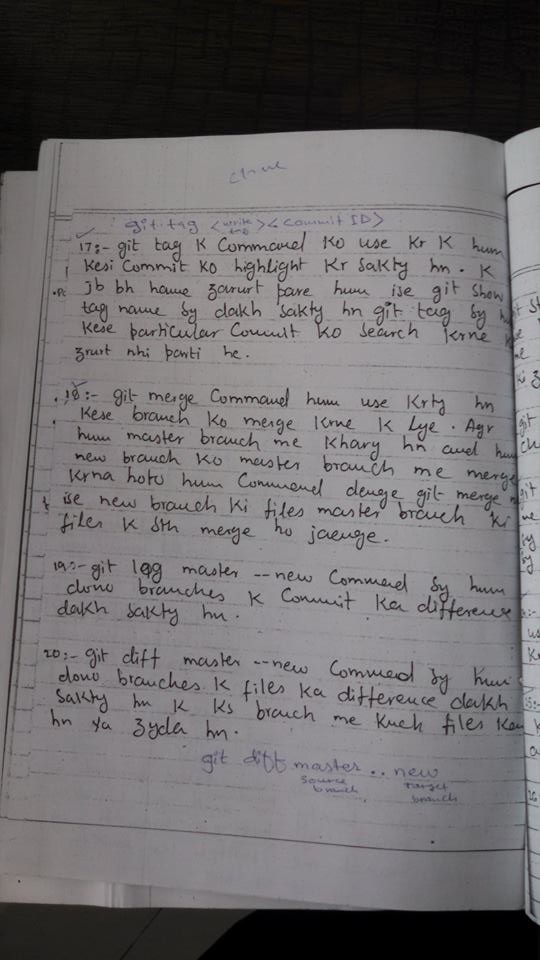 git tag <write tag> <commit ID>
17:- git tag K Command Ko use Kr K hum
Kesi Commit Ko highlight Kr Sakty hn. K
Jb bh hame zarurt pare hum ise git show
tag name sy dakh Sakty hn git tag sy
Kese particular Commit Ko Search Krne
zrurt nhi parti he.
18:- git merge Command hum use Krty hn
Kese branch Ko merge Krne K lye. Agr
hum master branch me Khary hn and hum
new branch Ko master branch me merge
Krna hoto hum Command denge git merge
ise new branch Ki files master branch Ki
files K Sth merge ho jaenge.
19:- git log master --new Command sy hum
dono branches K Commit Ka difference
dakh sakty hn.
20:- git diff master --new Command sy hum
dono branches K files Ka difference dakh
Sakty hn K Ks branch me Kuch files Kam
hn ya zyda hn.
git diff master .. new
source branch target branch